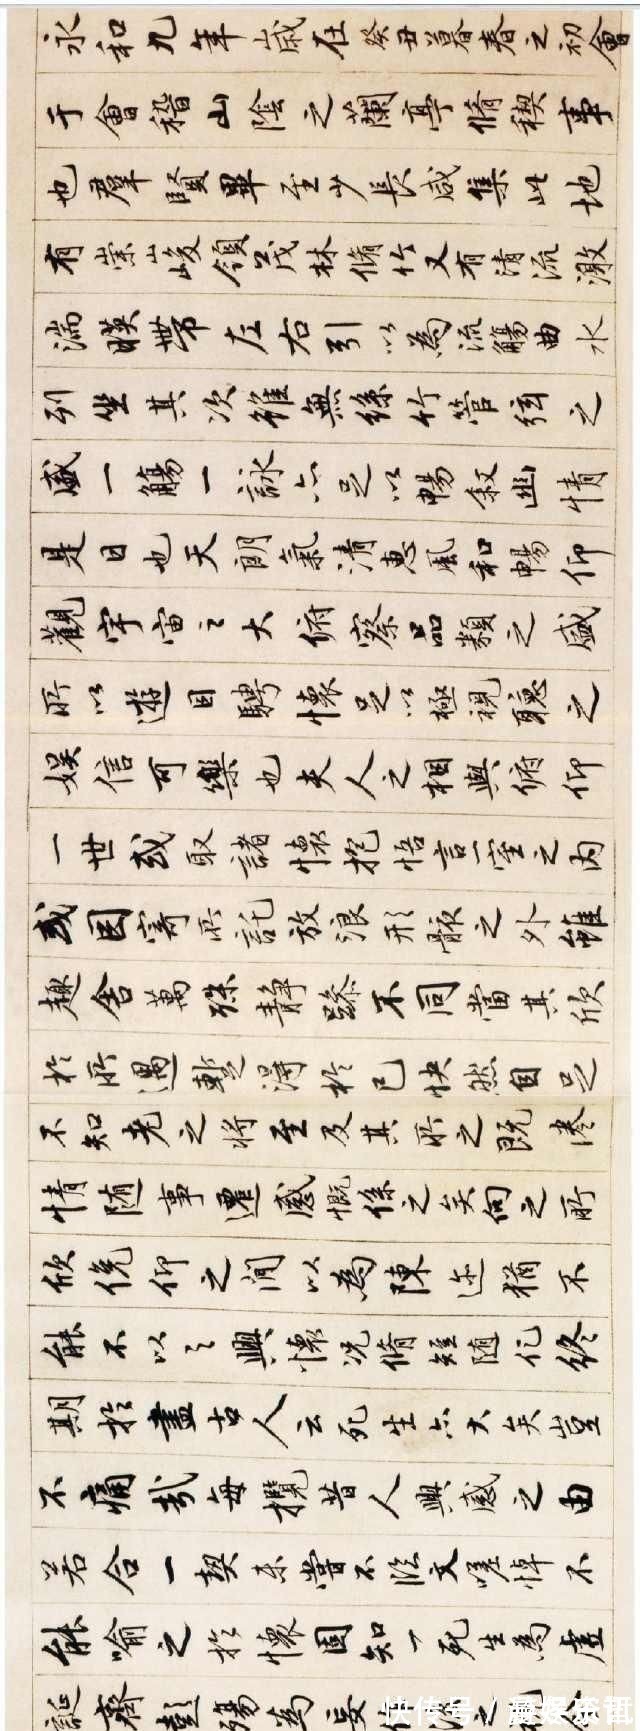 永和九年歲在癸丑暮春之初會
于會稽山陰之蘭亭脩稧事
也羣賢畢至少長咸集此地
有崇山峻領茂林脩竹又有清流激
湍暎帶左右引以為流觴曲水
列坐其次雖無絲竹管弦之
盛一觴一詠亦足以暢敘幽情
是日也天朗氣清惠風和暢仰
觀宇宙之大俯察品類之盛
所以遊目騁懷足以極視聽之
娛信可樂也夫人之相與俯仰
一世或取諸懷抱悟言一室之內
或因寄所託放浪形骸之外雖
趣舍萬殊靜躁不同當其欣
於所遇蹔得於己快然自足
不知老之將至及其所之既惓
情隨事遷感慨係之矣向之所
欣俛仰之間以為陳迹猶不
能不以之興懷況脩短隨化終
期於盡古人云死生亦大矣豈
不痛哉每攬昔人興感之由
若合一契未嘗不臨文嗟悼不
能喻之於懷固知一死生為虛
誕齊彭殤為妄
快传号 /